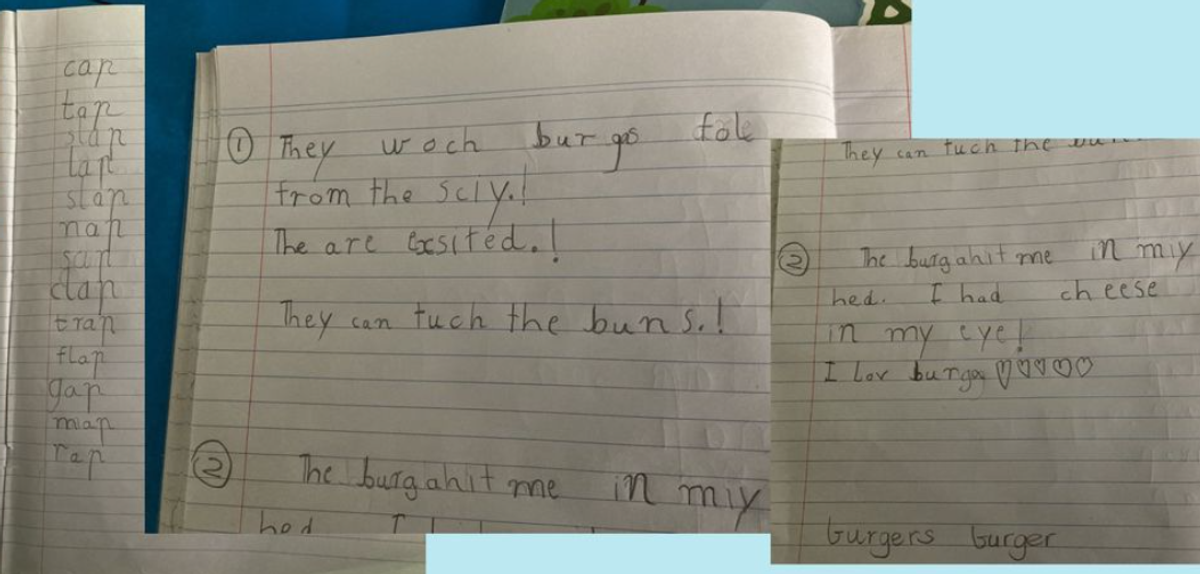 cap
tap
slap
lap
slap
nap
sap
clap
trap
flap
gap
map
rap
① They woch burgos fole
from the sciy.!
The are excsited.!
They can tuch the buns.!
② The burgahit me in miy
hed I h
They can tuch the bun
② The burgahit me in miy
hed. I had cheese
in my eye!
I lov burgos ♡♡♡♡♡
burgers burger